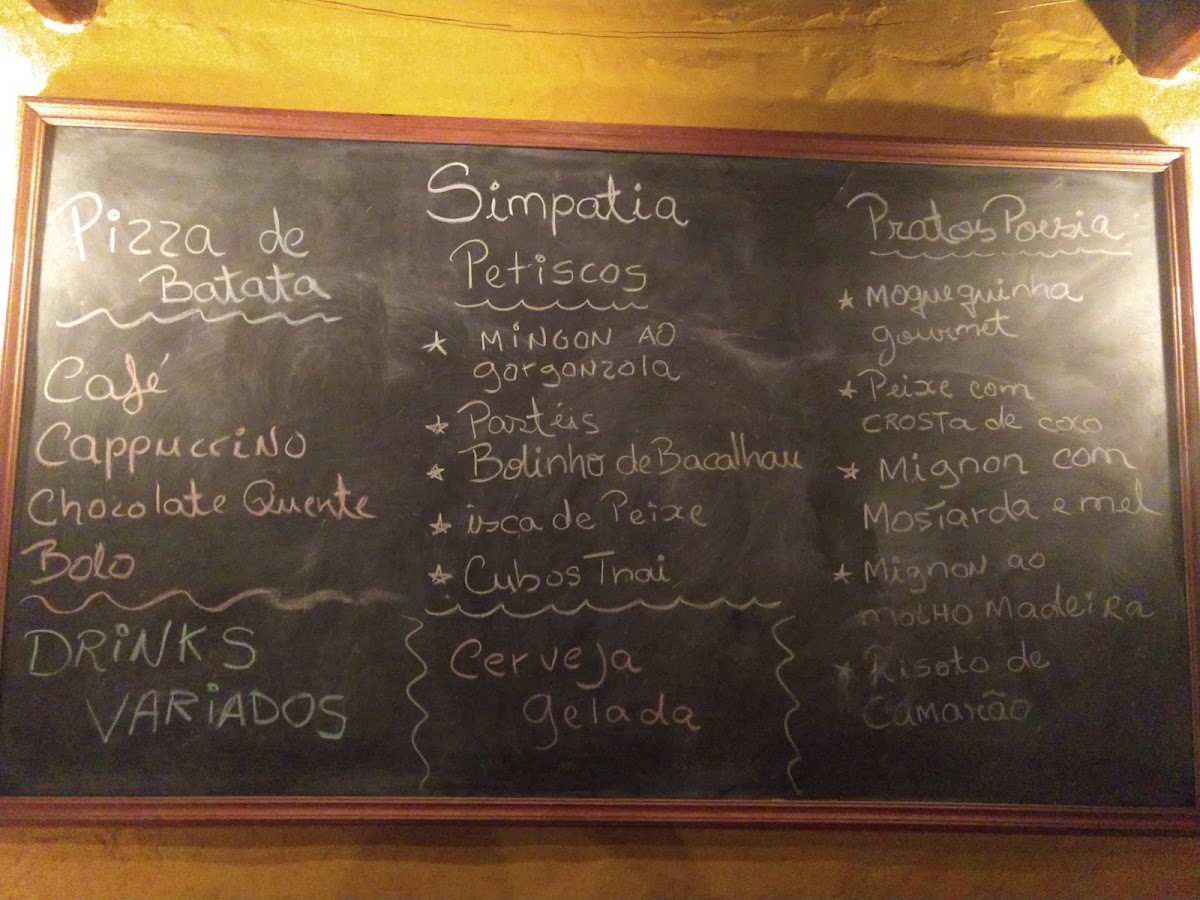 Pizza de
Batata
Café
Cappuccino
Chocolate Quente
Bolo
DRINKS
VARIADOS
Simpatia
Petiscos
★ MINGON AO
gorgonzola
★ Pastéis
★ Bolinho de Bacalhau
★ isca de Peixe
★ Cubos Thai
Cerveja
gelada
Pratos Poesia
★ Moquequinha
gourmet
★ Peixe com
CROSTA de coco
★ Mignon com
Mostarda e mel
★ Mignon ao
MOLHO Madeira
★ Risoto de
Camarão